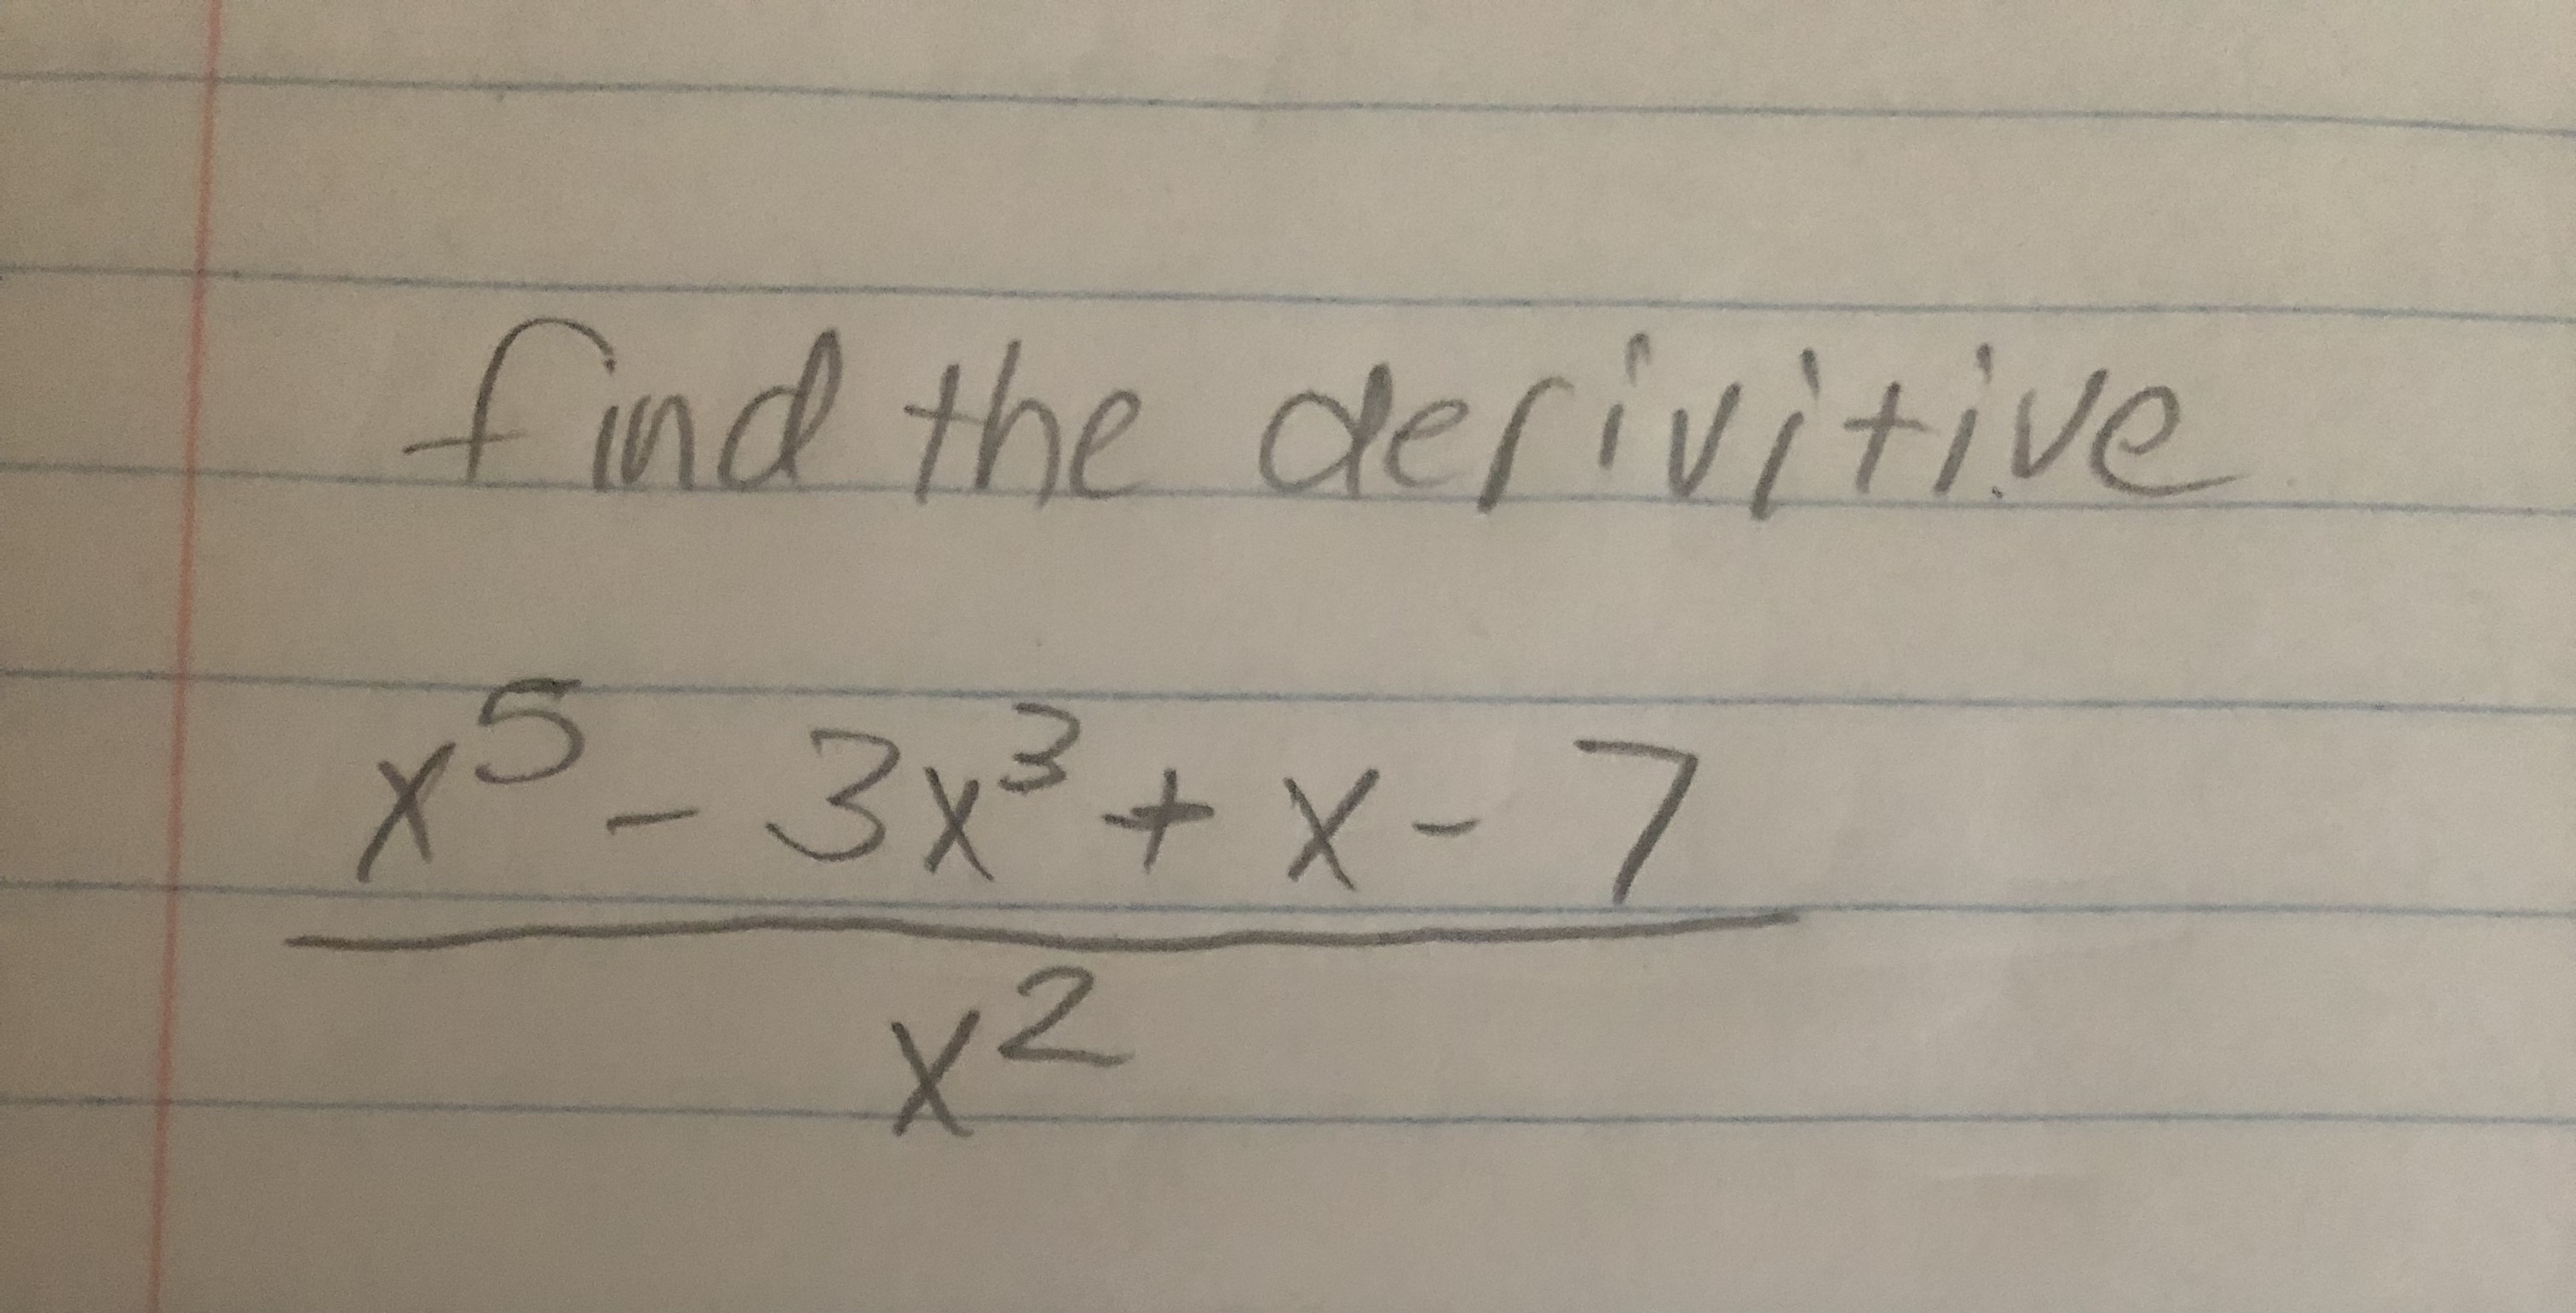 find the derivitive
x⁵ - 3x³ + x - 7
x²